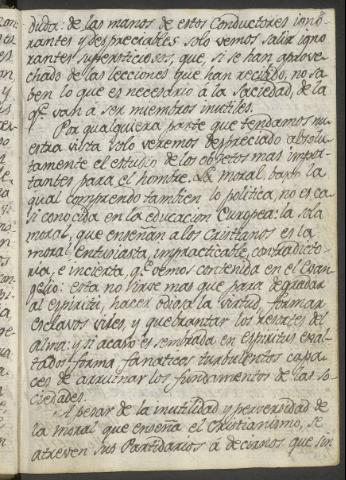 duda: de las manos de estos Conductores igno-
rantes y despreciables solo vemos salir igno
rantes supersticiosos, que, si se han aprove-
chado de las lecciones que han recivido, no sa
ben lo que es necesario à la Sociedad, de la
qe. van à ser miembros inutiles.
Por qualquiera parte que tendamos nu
estra vista solo veremos despreciado absolu-
tamente el estudio de los objetos mas impor-
tantes para el hombre. La moral, baxo la
qual comprendo tambien lo politica, no es ca
si conocida en la educacion Europea: la sola
moral, que enseñan a los Cristianos es la
moral entusiasta, impracticable, contradicto-
ria, e incierta, qe. vemos contenida en el Evan
gelio: esta no sirve mas que para degradar
al espiritu, hacer odiosa la virtud, formar
esclavos viles, y quebrantar los resortes del
alma: y si acaso es sembrada en espiritus exal-
tados forma fanaticos turbulentos capa-
ces de arruinar los fundamentos de las So-
ciedades.
A pesar de la inutilidad y perversidad de
la moral que enseña el Cristianismo, se
atreven sus Partidarios à decirnos que sin